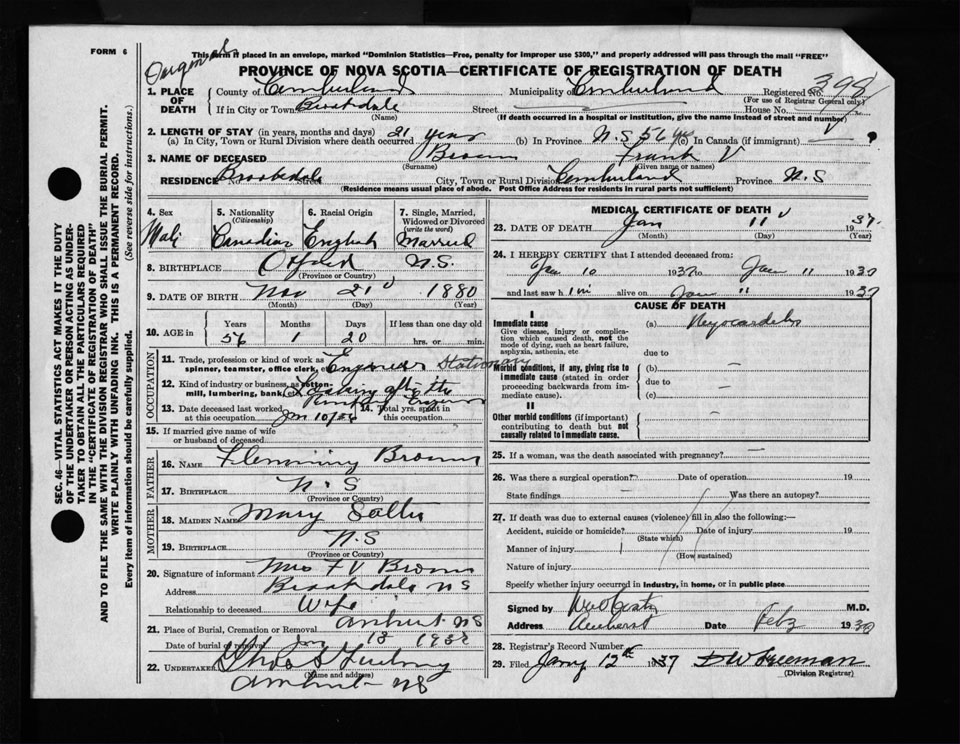 FORM 6
This form if placed in an envelope, marked "Dominion Statistics—Free, penalty for improper use $300," and properly addressed will pass through the mail "FREE"
PROVINCE OF NOVA SCOTIA—CERTIFICATE OF REGISTRATION OF DEATH
1. PLACE OF DEATH
County of Cumberland Municipality of Cumberland Registered No. 398
(For use of Registrar General only)
If in City or Town Brookdale Street House No.
(Name) (If death occurred in a hospital or institution, give the name instead of street and number)
2. LENGTH OF STAY (in years, months and days)
(a) In City, Town or Rural Division where death occurred 21 years (b) In Province N.S 56 yrs (c) In Canada (if immigrant)
3. NAME OF DECEASED Brown Frank V
(Surname) (Given name or names)
RESIDENCE No. Brookdale Street City, Town or Rural Division Cumberland Province N S
(Residence means usual place of abode. Post Office Address for residents in rural parts not sufficient)
SEC. 46—VITAL STATISTICS ACT MAKES IT THE DUTY
OF THE UNDERTAKER OR PERSON ACTING AS UNDER-
TAKER TO OBTAIN ALL THE PARTICULARS REQUIRED
IN THE "CERTIFICATE OF REGISTRATION OF DEATH"
AND TO FILE THE SAME WITH THE DIVISION REGISTRAR WHO SHALL ISSUE THE BURIAL PERMIT.
WRITE PLAINLY WITH UNFADING INK. THIS IS A PERMANENT RECORD.
Every item of information should be carefully supplied. (See reverse side for instructions.)
4. Sex Male
5. Nationality (Citizenship) Canadian
6. Racial Origin English
7. Single, Married, Widowed or Divorced (write the word) Married
8. BIRTHPLACE Oxford N.S.
(Province or Country)
9. DATE OF BIRTH Nov 21 1880
(Month) (Day) (Year)
10. AGE in Years Months Days If less than one day old
56 1 20 hrs. or min.
OCCUPATION
11. Trade, profession or kind of work as
spinner, teamster, office clerk, etc. Engineer Stationary
12. Kind of industry or business, as cotton-
mill, lumbering, bank, etc. Looking after the
13. Date deceased last worked at this occupation Jan 10/36 14. Total yrs. spent in this occupation
15. If married give name of wife
or husband of deceased
FATHER
16. NAME Flemming Brown
17. BIRTHPLACE N. S
(Province or Country)
MOTHER
18. MAIDEN NAME Mary
19. BIRTHPLACE N.S
(Province or Country)
20. Signature of informant Mrs F V Brown
Address Brookdale NS
Relationship to deceased Wife
21. Place of Burial, Cremation or Removal Amherst NS
Date of burial or removal Jan 13
22. UNDERTAKER
(Name and address)
Amherst NS
MEDICAL CERTIFICATE OF DEATH
23. DATE OF DEATH Jan 11 1937.
(Month) (Day) (Year)
24. I HEREBY CERTIFY that I attended deceased from:
Jan 10 1937 to Jan 11 1937
and last saw him alive on Jan 11 1937
CAUSE OF DEATH
I
Immediate cause (a) Myocarditis
Give disease, injury or complica-
tion which caused death, not the
mode of dying, such as heart failure,
asphyxia, asthenia, etc.
due to
Morbid conditions, if any, giving rise to (b) —
immediate cause (stated in order due to —
proceeding backwards from im-
mediate cause). (c)
II
Other morbid conditions (if important)
contributing to death but not
causally related to immediate cause.
25. If a woman, was the death associated with pregnancy? —
26. Was there a surgical operation? — Date of operation 19
State findings — Was there an autopsy?
27. If death was due to external causes (violence) fill in also the following:—
Accident, suicide or homicide? Date of injury 19
(State which)
Manner of injury
(How sustained)
Nature of injury
Specify whether injury occurred in Industry, in home, or in public place
Signed by M.D.
Address Amherst Date Feb 2
28. Registrar's Record Number 6
29. Filed Jany 12th 1937 D W Freeman
(Division Registrar)